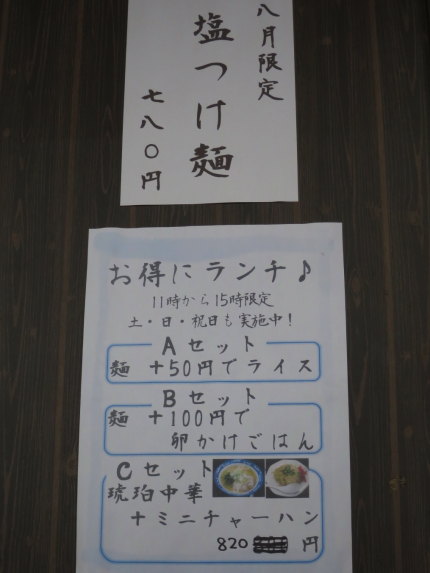 八月限定
塩つけ麺
七八〇円
お得にランチ♪
11時から15時限定
土・日・祝日も実施中！
Aセット
麺 +50円でライス
Bセット
麺 +100円で
卵かけごはん
Cセット
琥珀中華
+ミニチャーハン
820 円